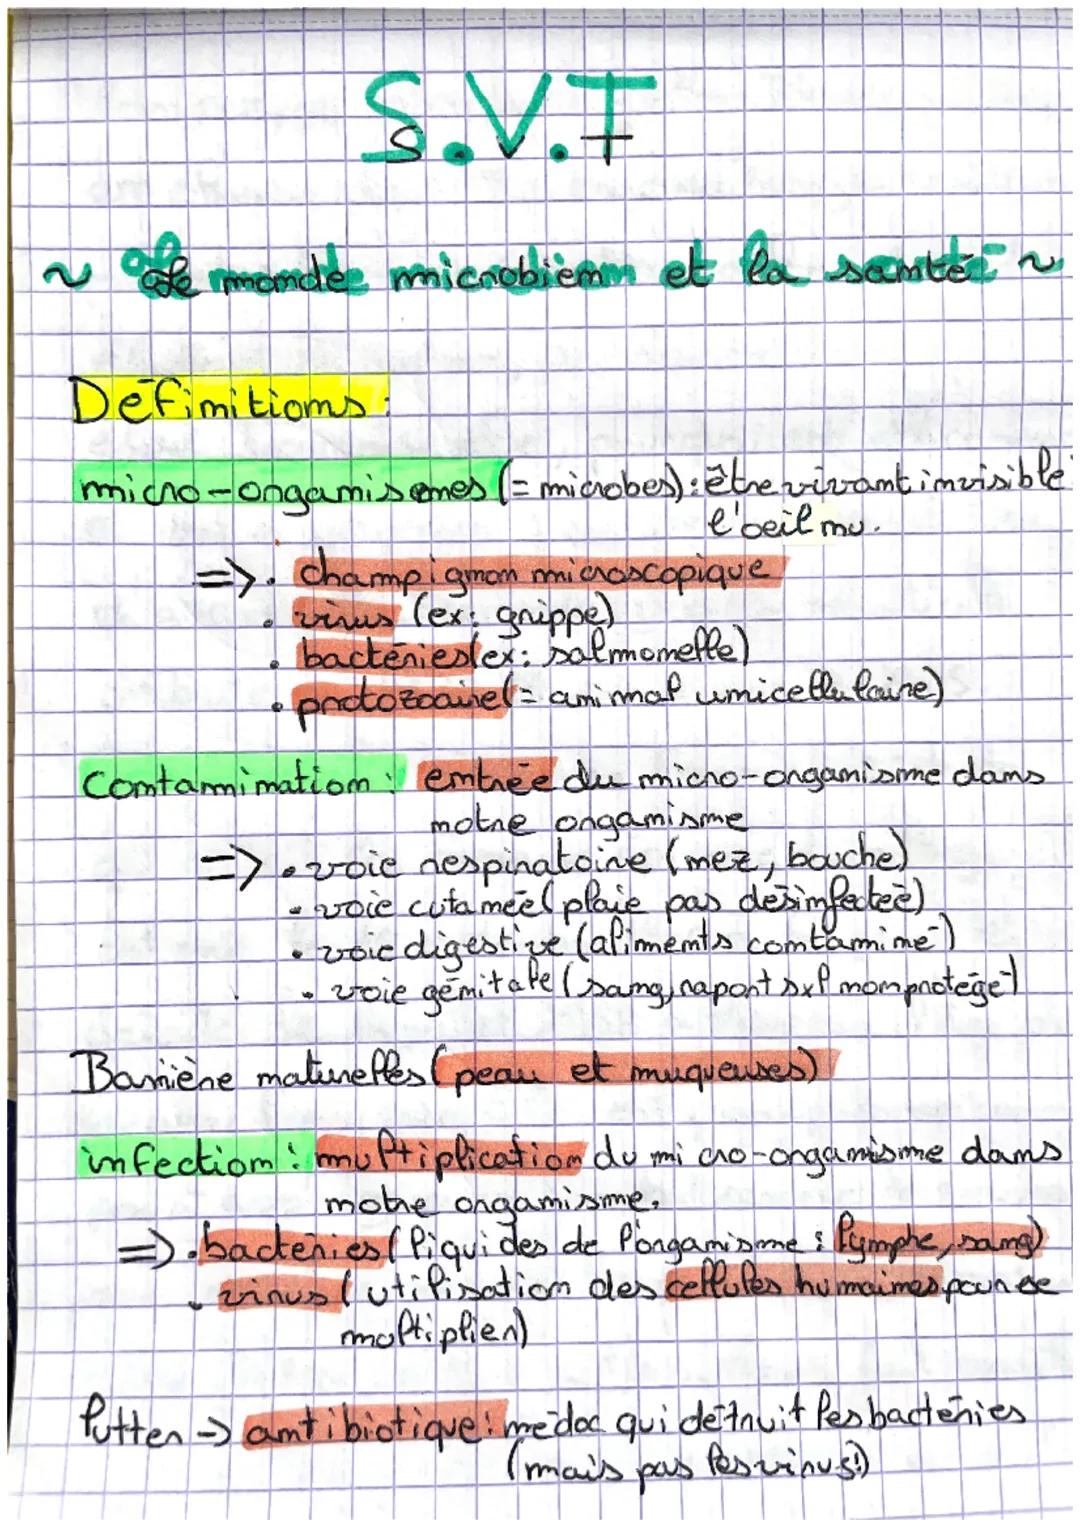 S.V.T
~ Le monde microbien et la santé ~
Définitions :
micro-organismes (= microbes) : être vivant invisible
l'oeil nu.
=> . champignon microscopique
. virus (ex: grippe)
. bactéries (ex: salmonelle)
. protozoaire (= animal unicellulaire)
Contamination : entrée du micro-organisme dans
notre organisme
=> . voie respiratoire (nez, bouche)
- voie cutanée (plaie pas désinfectée)
. voie digestive (aliments contaminé)
. voie génitale (sang, raport sxl non protégé)
Barrière naturelles (peau et muqueuses)
infection : multiplication du micro-organisme dans
notre organisme.
=> . bactéries (liquides de l'organisme : lymphe, sang)
. virus (utilisation des cellules humaines pour se
multiplier)
lutter -> antibiotique : médoc qui détruit les bactéries
(mais pas les virus!)